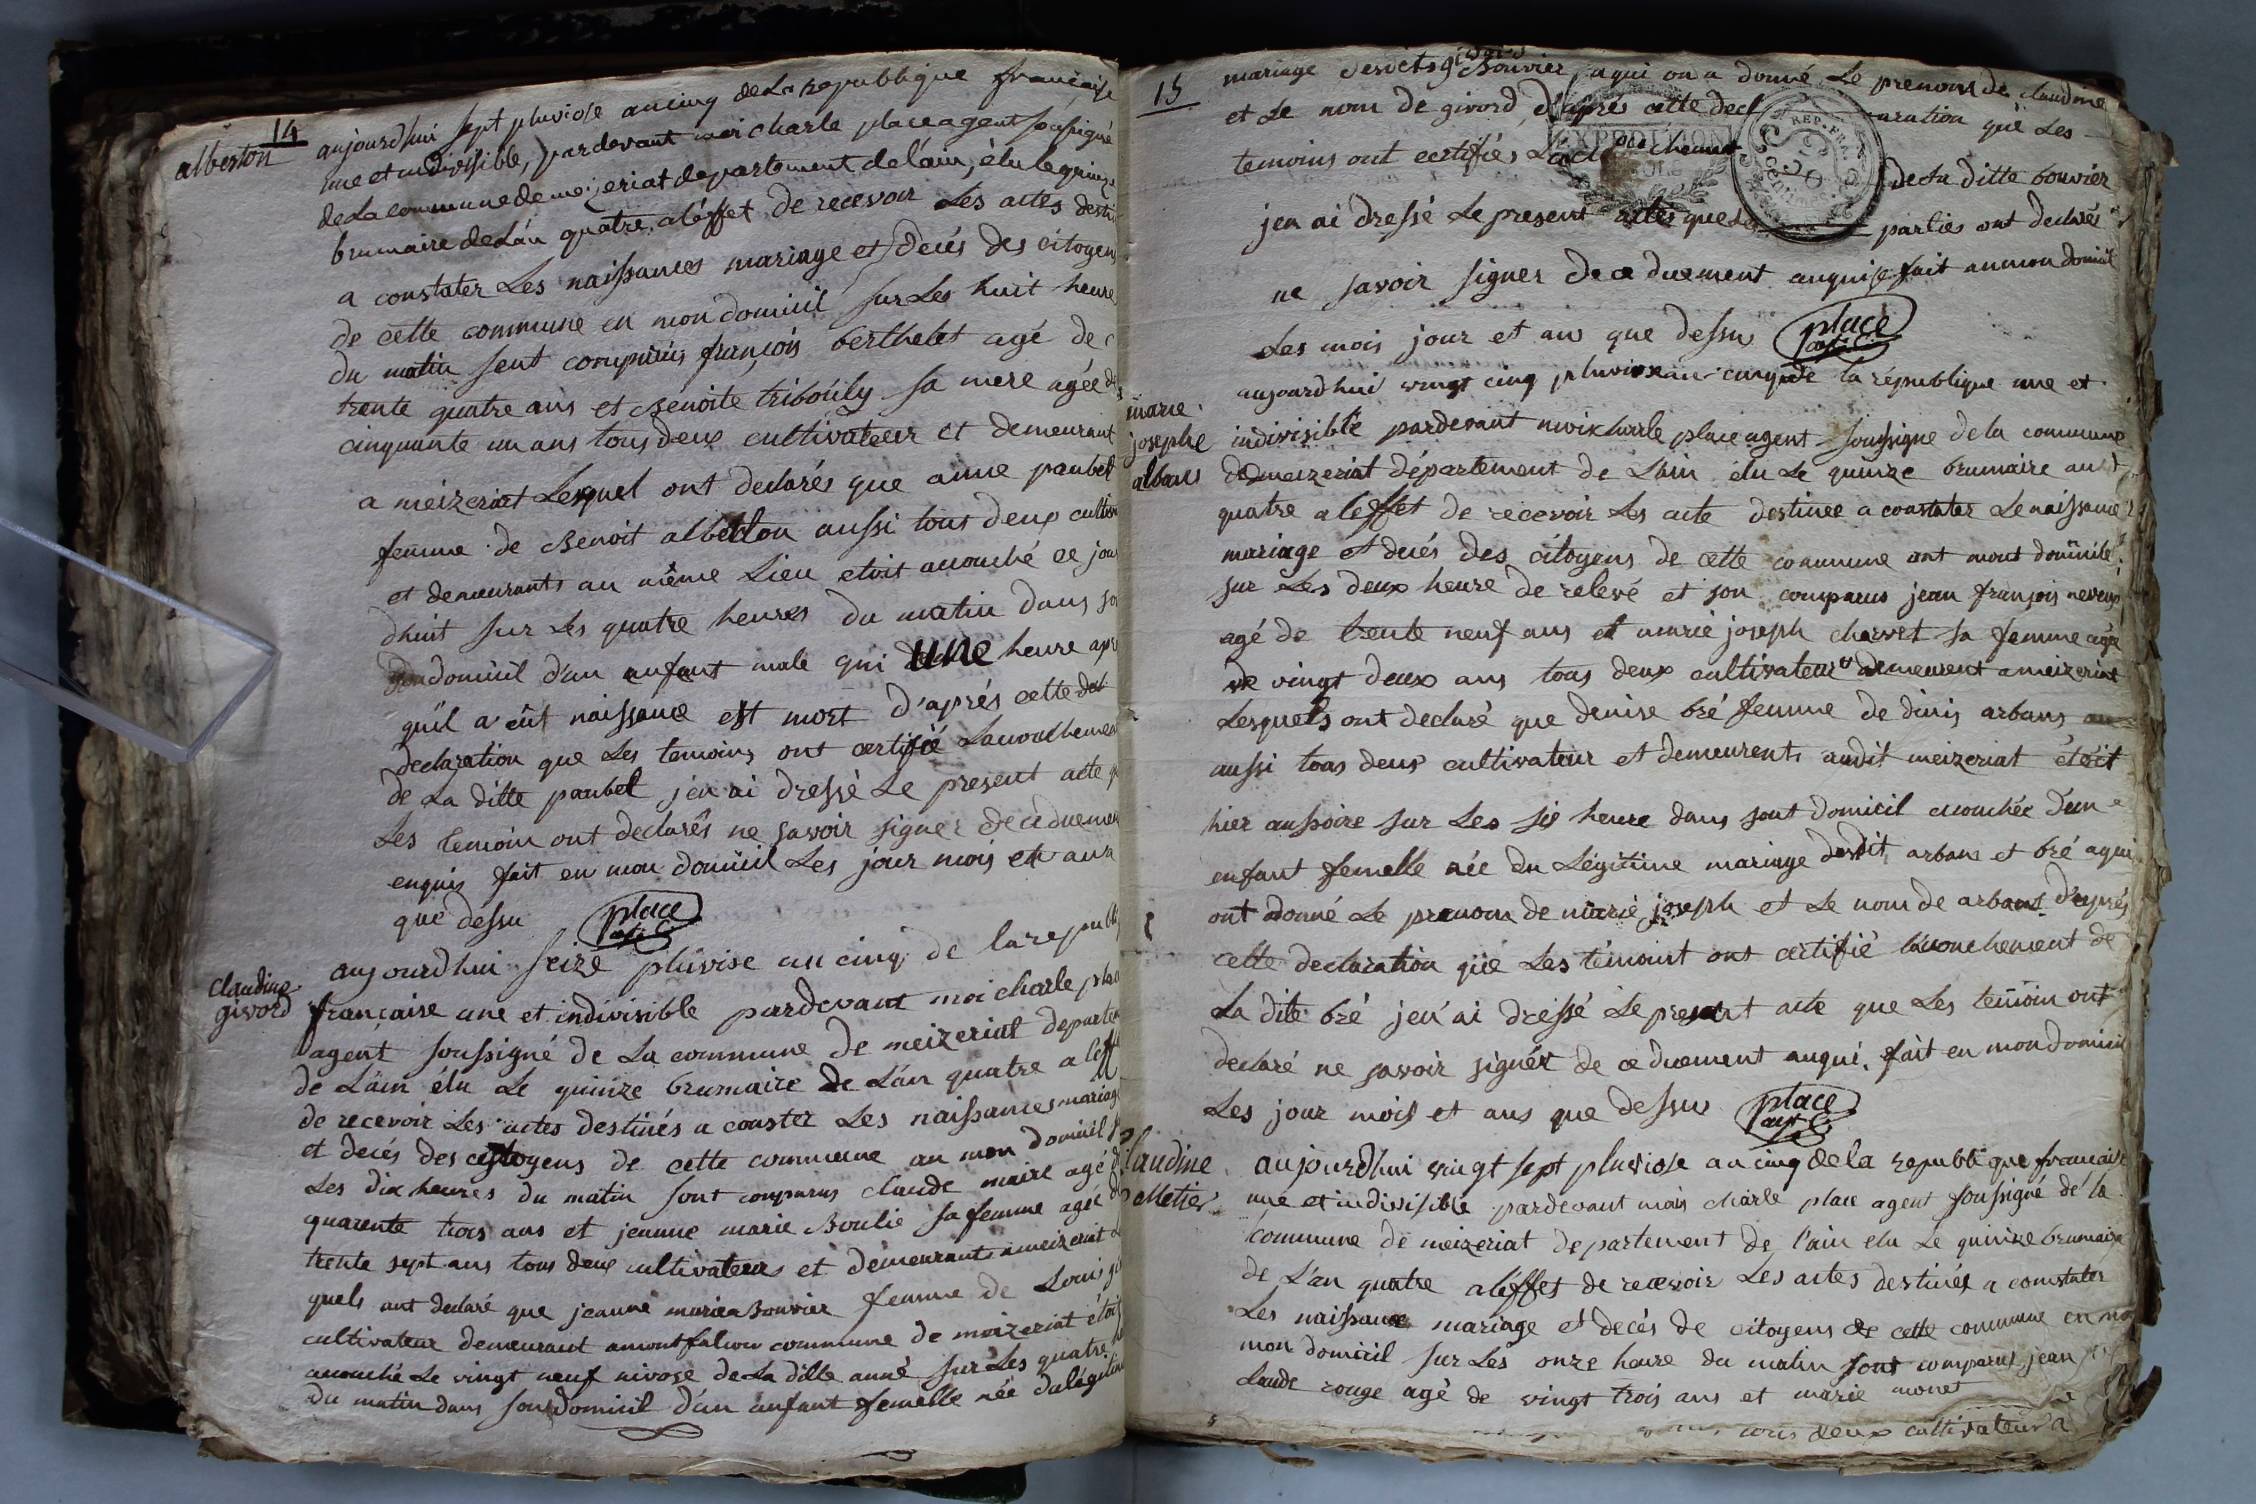 14
alberton
aujourdhui sept pluviose an cinq de La republique française
une et indivisible, pardevant moi charle place agent soussigné
de La commune de meizeriat departement de l'ain, élu le quinze
brumaire de L'an quatre, a l'éffet de recevoir Les actes destin
a constater Les naissances mariage et Decés des citoyens
de cette commune en mon domicil sur Les huit heure
du matin sent comparus françois berthelet agé de
trente quatre ans et Benoite tribouly sa mere agée de
cinquante un ans tous deux cultivateur et demeurant
a meizeriat Lesquel ont declarés que anne paubel
femme de Benoit alberton aussi tous deux cultiv
et demeurants au même Lieu etoit acouché ce jour
dhuit sur Les quatre heures du matin dans so
domicil d'un enfant male qui une heure apr
qu'il a eût naissance est mort D'aprés cette
declaration que Les temoins ont certifié Lacouchemen
de La ditte paubel jen ai dressé Le present acte q
Les temoin ont declarés ne savoir signer de ce duemen
enquis fait en mon domicil Les jour mois et an
que dessu place
agt
claudine
givord
aujourdhui seize pluvise an cinq de la republi
française une et indivisible pardevant moi charle plac
agent soussigné de La commune de meizeriat departem
de L'ain élu Le quinze brumaire de L'an quatre a l'eff
de recevoir Les actes destinés a conster Les naissances mariage
et decés des citoyens de cette commune an mon domicil s
Les dix heures du matin sont comparus claude maire agé d
quarente trois ans et jeanne marie Boulie sa femme agée d
trente sept ans tous deux cultivateurs et demeurant a meizeriat L
quels ont declaré que jeanne marie Bouvier femme de Louis gi
cultivateur demeurant a montfalcon commune de meizeriat étoit
acouché Le vingt neuf nivose de La ditte anné sur Les quatre
du matin dans son domicil d'un enfant femelle née du légitim
15
mariage desdits givord Bouvier, a qui on a donné Le prenom de claudine
et Le nom de givord, d'aprés cette decl aration que Les
temoins ont certifiés Lacouchement de La ditte bouvier
EXPEDITION
REP. FRA.
jen ai dressé Le present acte que Les parties ont declarés
ne savoir signer de ce duement anquise fait an mon domicil
Les mois jour et an que dessu place
agt
marie
josephe
albans
aujourdhui vingt cinq pluviose an cinq de la république une et
indivisible pardevant moi charle place agent soussigne de la commune
de meizeriat département de L'ain élu Le quinze brumaire an
quatre a l'effet de recevoir Les acte destinee a constater Le naissance
mariage et decés des citoyens de cette commune ont mont domicile
sur Les deux heure de relevé et son comparus jean françois neveux
agé de trente neuf ans et marie joseph charvet sa femme agée
de vingt deux ans tous deux cultivateur demeurent a meizeriat
Lesquels ont declaré que denise bré femme de dinis arbans
aussi tous deux cultivateur et demeurents audit meizeriat étoit
hier aussoire sur Les six heure dans sont domicil acouchée d'un
enfant femelle née du Légitime mariage desdit arbans et bré a qui
ont donné Le prenom de marie joseph et Le nom de arbans d'aprés
cette declaration que Les témoint ont certifié lacouchement de
La dite bré jen ai dressé Le present acte que Les temoin ont
declaré ne savoir signér de ce duement anqui. fait en mon domicil
Les jour mois et ans que dessus place
agt
claudine
Metier
aujourdhui vingt sept pluviose an cinq de la republique française
une et indivisible pardevant mois charle place agent soussigné de la
commune de meizeriat departement de l'ain elu Le quinze brumaire
de L'an quatre a l'éffet de recevoir Les actes destinés a constater
Les naissance mariage et decés de citoyens de cette commune en mo
mon domicil sur Les onze heure du matin sont comparus jean
claude rouge agé de vingt trois ans et marie monet
tous deux cultivateur a